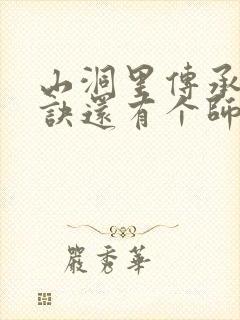 山洞里傳承
訣還有个師
嚴秀華